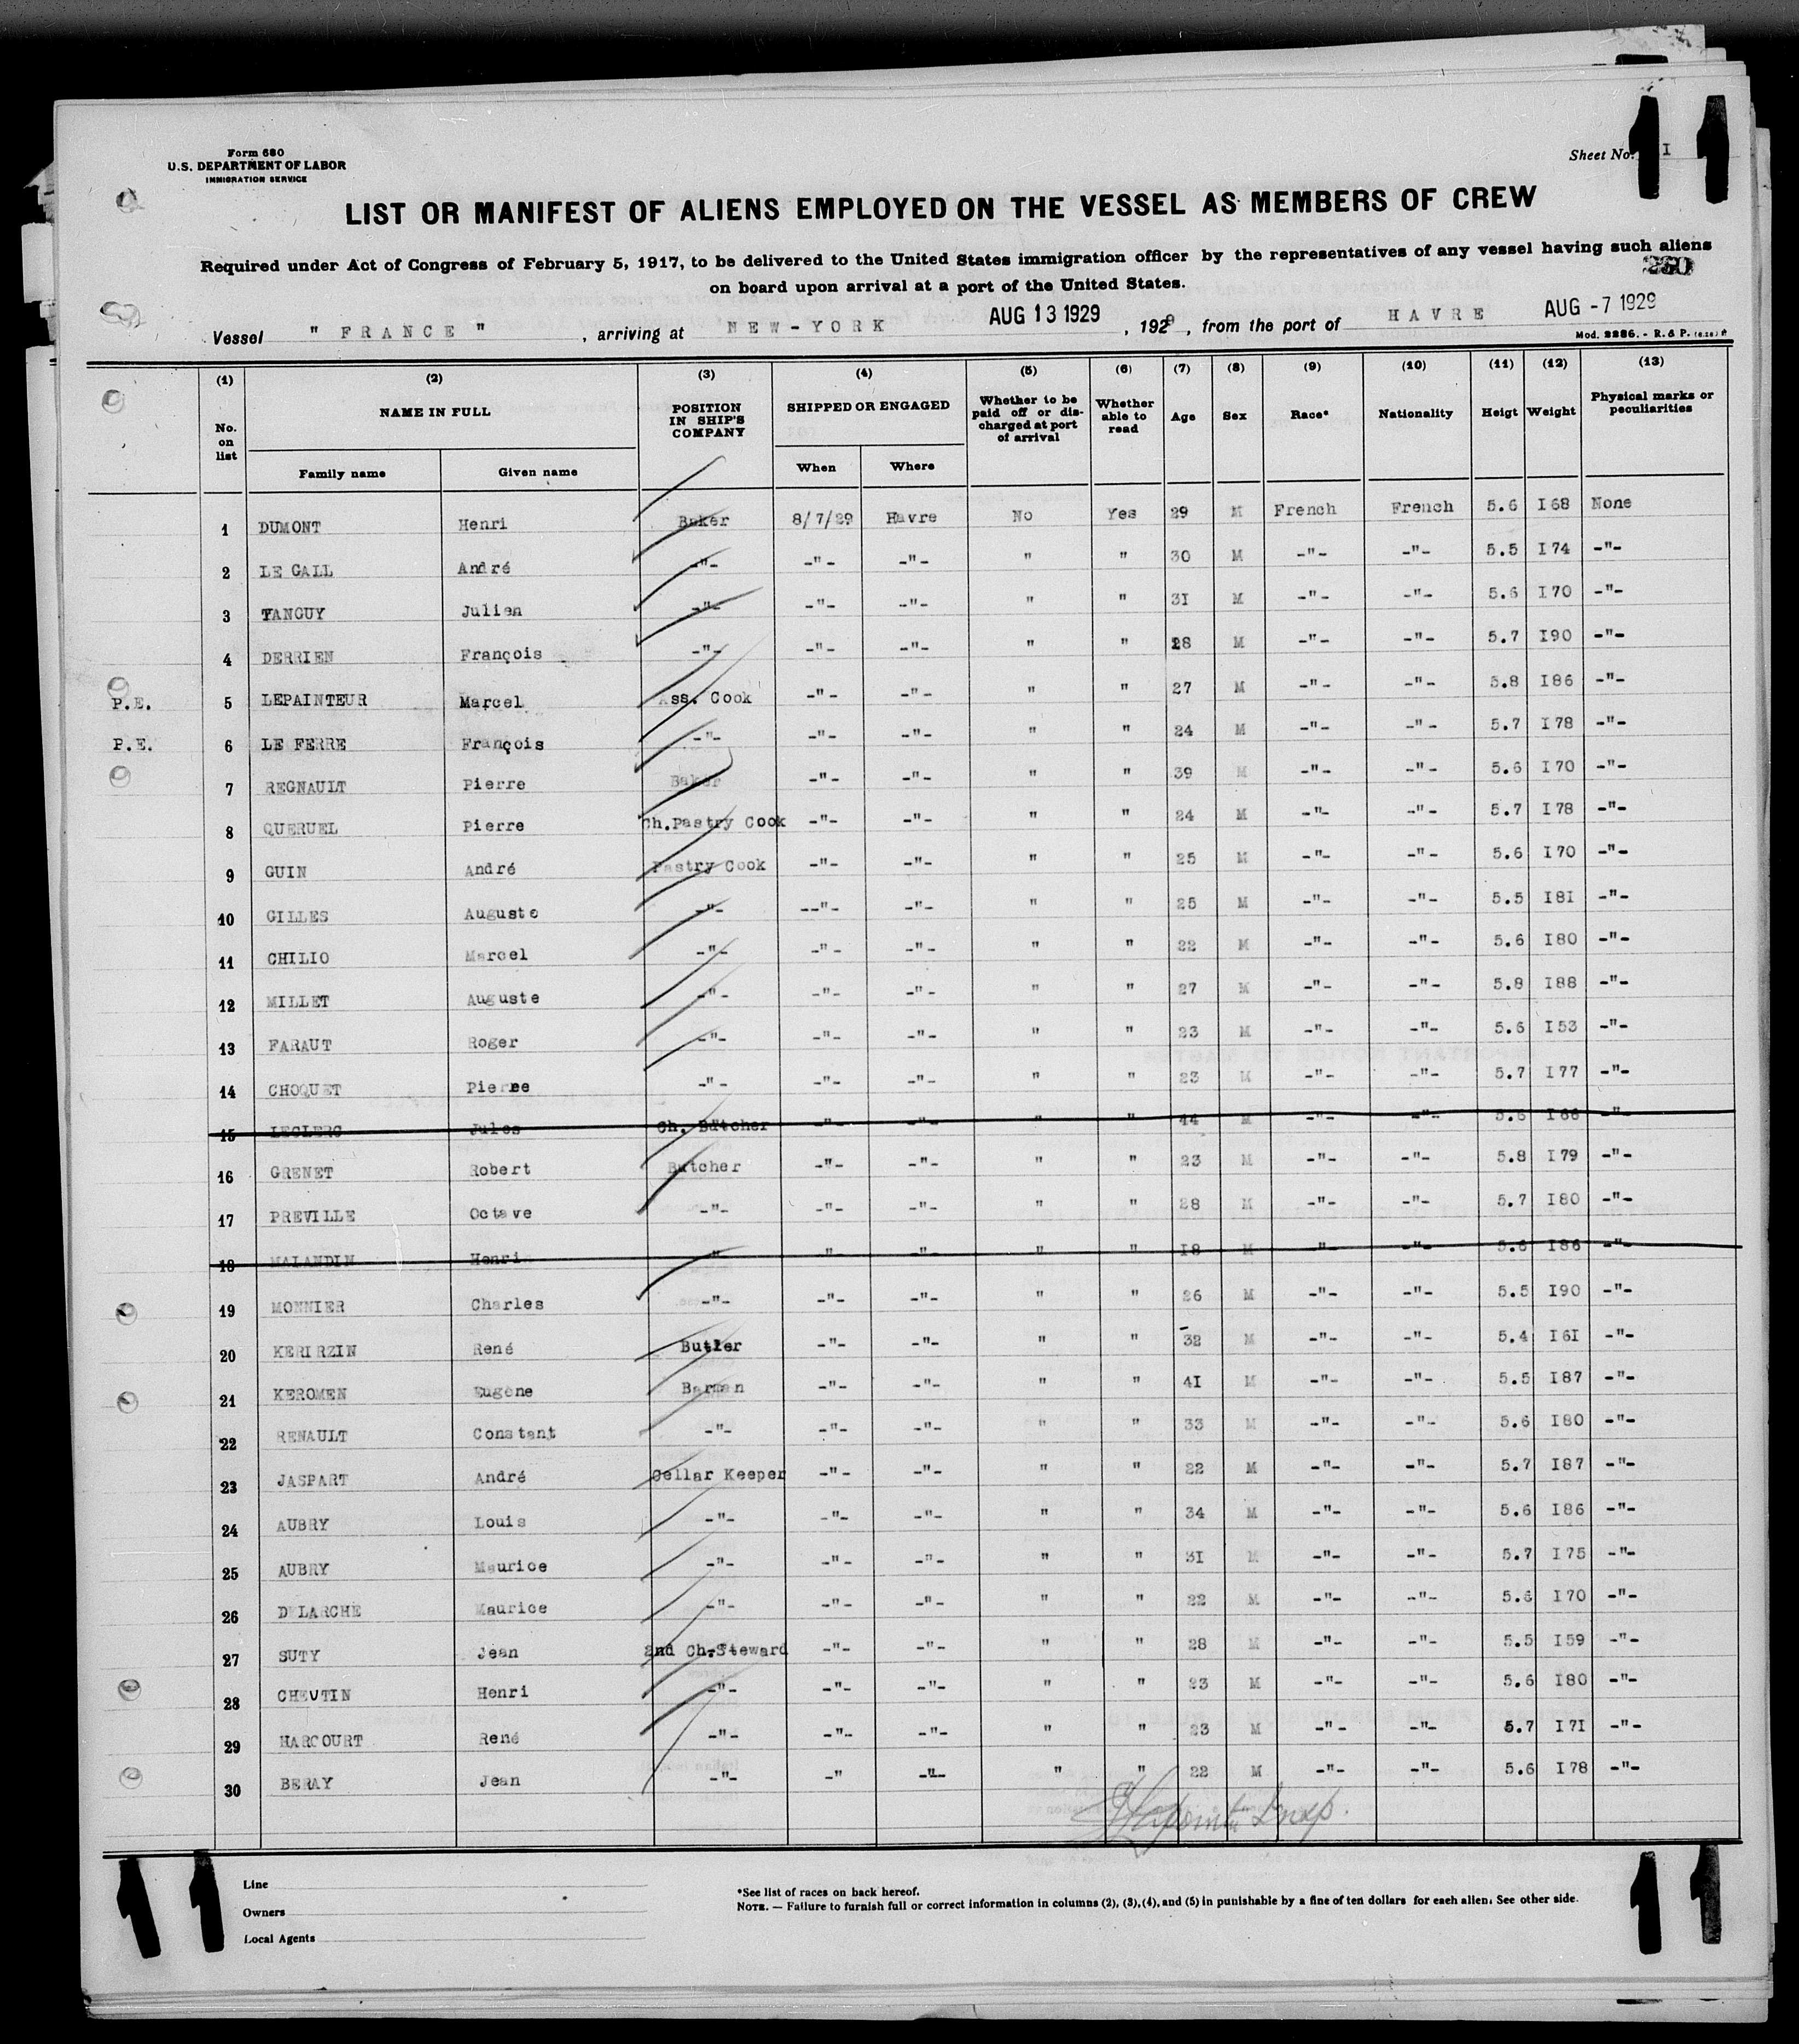 11
Form 680
U.S. DEPARTMENT OF LABOR
IMMIGRATION SERVICE
Sheet No. I
LIST OR MANIFEST OF ALIENS EMPLOYED ON THE VESSEL AS MEMBERS OF CREW
Required under Act of Congress of February 5, 1917, to be delivered to the United States immigration officer by the representatives of any vessel having such aliens
on board upon arrival at a port of the United States.
Vessel " FRANCE " , arriving at NEW-YORK AUG 13 1929 , 1929 , from the port of HAVRE AUG -7 1929
Mod. 2286. - R. & P.
(1) (2) (3) (4) (5) (6) (7) (8) (9) (10) (11) (12) (13)
No. on list NAME IN FULL POSITION IN SHIP'S COMPANY SHIPPED OR ENGAGED Whether to be paid off or discharged at port of arrival Whether able to read Age Sex Race* Nationality Heigt Weight Physical marks or peculiarities
Family name Given name When Where
1 DUMONT Henri Baker 8/7/29 Havre No Yes 29 M French French 5.6 I68 None
2 LE GALL André -"- -"- -"- " " 30 M -"- -"- 5.5 I74 -"-
3 TANGUY Julien -"- -"- -"- " " 3I M -"- -"- 5.6 I70 -"-
4 DERRIEN François -"- -"- -"- " " 28 M -"- -"- 5.7 I90 -"-
P.E. 5 LEPAINTEUR Marcel Ass. Cook -"- -"- " " 27 M -"- -"- 5.8 I86 -"-
P.E. 6 LE FERRE François -"- -"- -"- " " 24 M -"- -"- 5.7 I78 -"-
7 REGNAULT Pierre Baker -"- -"- " " 39 M -"- -"- 5.6 I70 -"-
8 QUERUEL Pierre Ch.Pastry Cook -"- -"- " " 24 M -"- -"- 5.7 I78 -"-
9 GUIN André Pastry Cook -"- -"- " " 25 M -"- -"- 5.6 I70 -"-
10 GILLES Auguste -"- --"- -"- " " 25 M -"- -"- 5.5 I8I -"-
11 CHILIO Marcel -"- -"- -"- " " 22 M -"- -"- 5.6 I80 -"-
12 MILLET Auguste -"- -"- -"- " " 27 M -"- -"- 5.8 I88 -"-
13 FARAUT Roger -"- -"- -"- " " 23 M -"- -"- 5.6 I53 -"-
14 CHOQUET Pierre -"- -"- -"- " " 23 M -"- -"- 5.7 I77 -"-
15 LECLERC Jules Ch. Butcher -"- -"- " " 44 M -"- -"- 5.6 I66 -"-
16 GRENET Robert Butcher -"- -"- " " 23 M -"- -"- 5.8 I79 -"-
17 PREVILLE Octave -"- -"- -"- " " 28 M -"- -"- 5.7 I80 -"-
18 MALANDIN Henri -"- -"- -"- " " I8 M -"- -"- 5.6 I86 -"-
19 MONNIER Charles -"- -"- -"- " " 26 M -"- -"- 5.5 I90 -"-
20 KERIRZIN René Butler -"- -"- " " 32 M -"- -"- 5.4 I6I -"-
21 KEROMEN Eugène Barman -"- -"- " " 4I M -"- -"- 5.5 I87 -"-
22 RENAULT Constant -"- -"- -"- " " 33 M -"- -"- 5.6 I80 -"-
23 JASPART André Cellar Keeper -"- -"- " " 22 M -"- -"- 5.7 I87 -"-
24 AUBRY Louis -"- -"- -"- " " 34 M -"- -"- 5.6 I86 -"-
25 AUBRY Maurice -"- -"- -"- " " 3I M -"- -"- 5.7 I75 -"-
26 DELARCHE Maurice -"- -"- -"- " " 22 M -"- -"- 5.6 I70 -"-
27 SUTY Jean 2nd Ch.Steward -"- -"- " " 28 M -"- -"- 5.5 I59 -"-
28 CHEUTIN Henri -"- -"- -"- " " 23 M -"- -"- 5.6 I80 -"-
29 HARCOURT René -"- -"- -"- " " 23 M -"- -"- 5.7 I7I -"-
30 BERAY Jean -"- -" -"- " " 22 M -"- -"- 5.6 I78 -"-
Insp.
11
11
Line
Owners
Local Agents
*See list of races on back hereof.
NOTE. — Failure to furnish full or correct information in columns (2), (3), (4), and (5) in punishable by a fine of ten dollars for each alien. See other side.